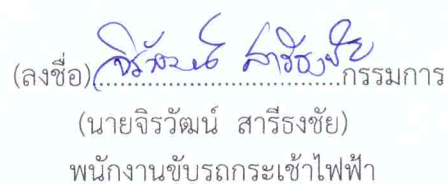 (ลงชื่อ) จิรวัฒน์ สารีธงชัย กรรมการ
(นายจิรวัฒน์ สารีธงชัย)
พนักงานขับรถกระเช้าไฟฟ้า